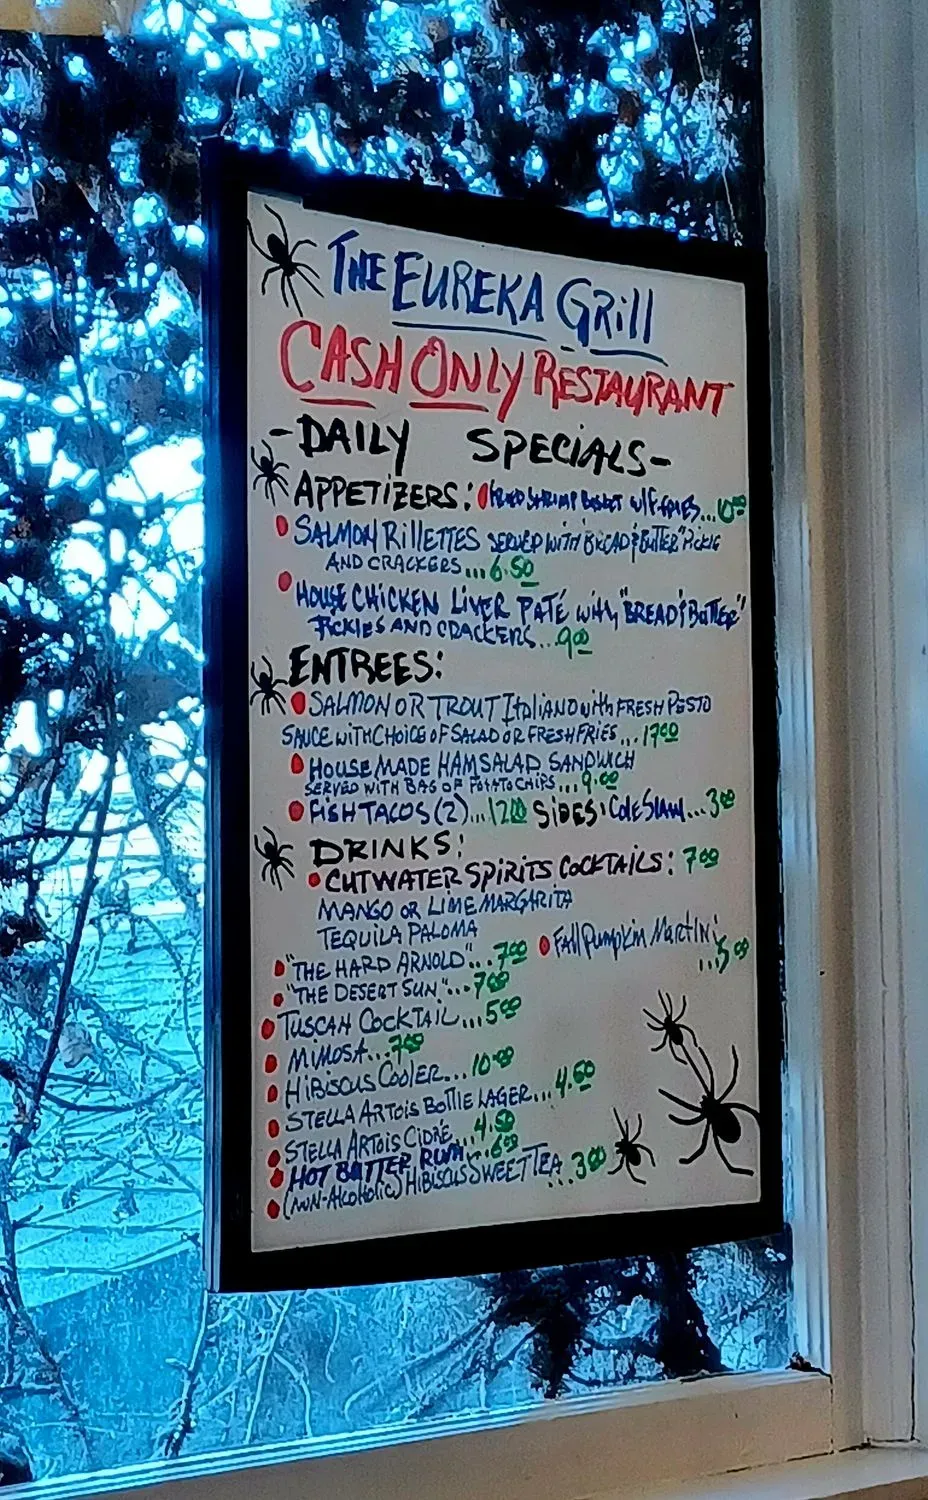 THE EUREKA GRill
CASH ONLY RESTAURANT
-DAILY SPECIALS-
APPETIZERS: FRIED SHRIMP BASKET W/FRIES...10.00
SALMON RillETTES SERVED WITH "BREAD & BUTTER" PICKLE
AND CRACKERS...6.50
HOUSE CHICKEN LIVER PATÉ with "BREAD & BUTTER"
PICKLES AND CRACKERS...9.00
ENTREES:
SALMON OR TROUT ItaliANO with FRESH PESTO
SAUCE WITH CHOICE OF SALAD OR FRESH FRIES...17.00
HOUSE MADE HAM SALAD SANDWICH
SERVED WITH BAG OF POTATO CHIPS...9.00
FISH TACOS (2)...12.00 SIDES: COLE SLAW...3.00
DRINKS:
CUTWATER SPIRITS COCKTAILS: 7.00
MANGO OR LIME MARGARITA
TEQUILA PALOMA
"THE HARD ARNOLD"...7.00 FAll Pumpkin Martini
...5.00
"THE DESERT SUN"...7.00
TUSCAN COCKTAIL...5.00
MIMOSA...7.00
HIBISCUS COOLER...10.00
STELLA ARTOIS BOTTLE LAGER...4.50
STELLA ARTOIS CIDRE...4.50
HOT BUTTER RUM...6.00
(NON-AlcoHolic) HIBISCUS SWEET TEA...3.00